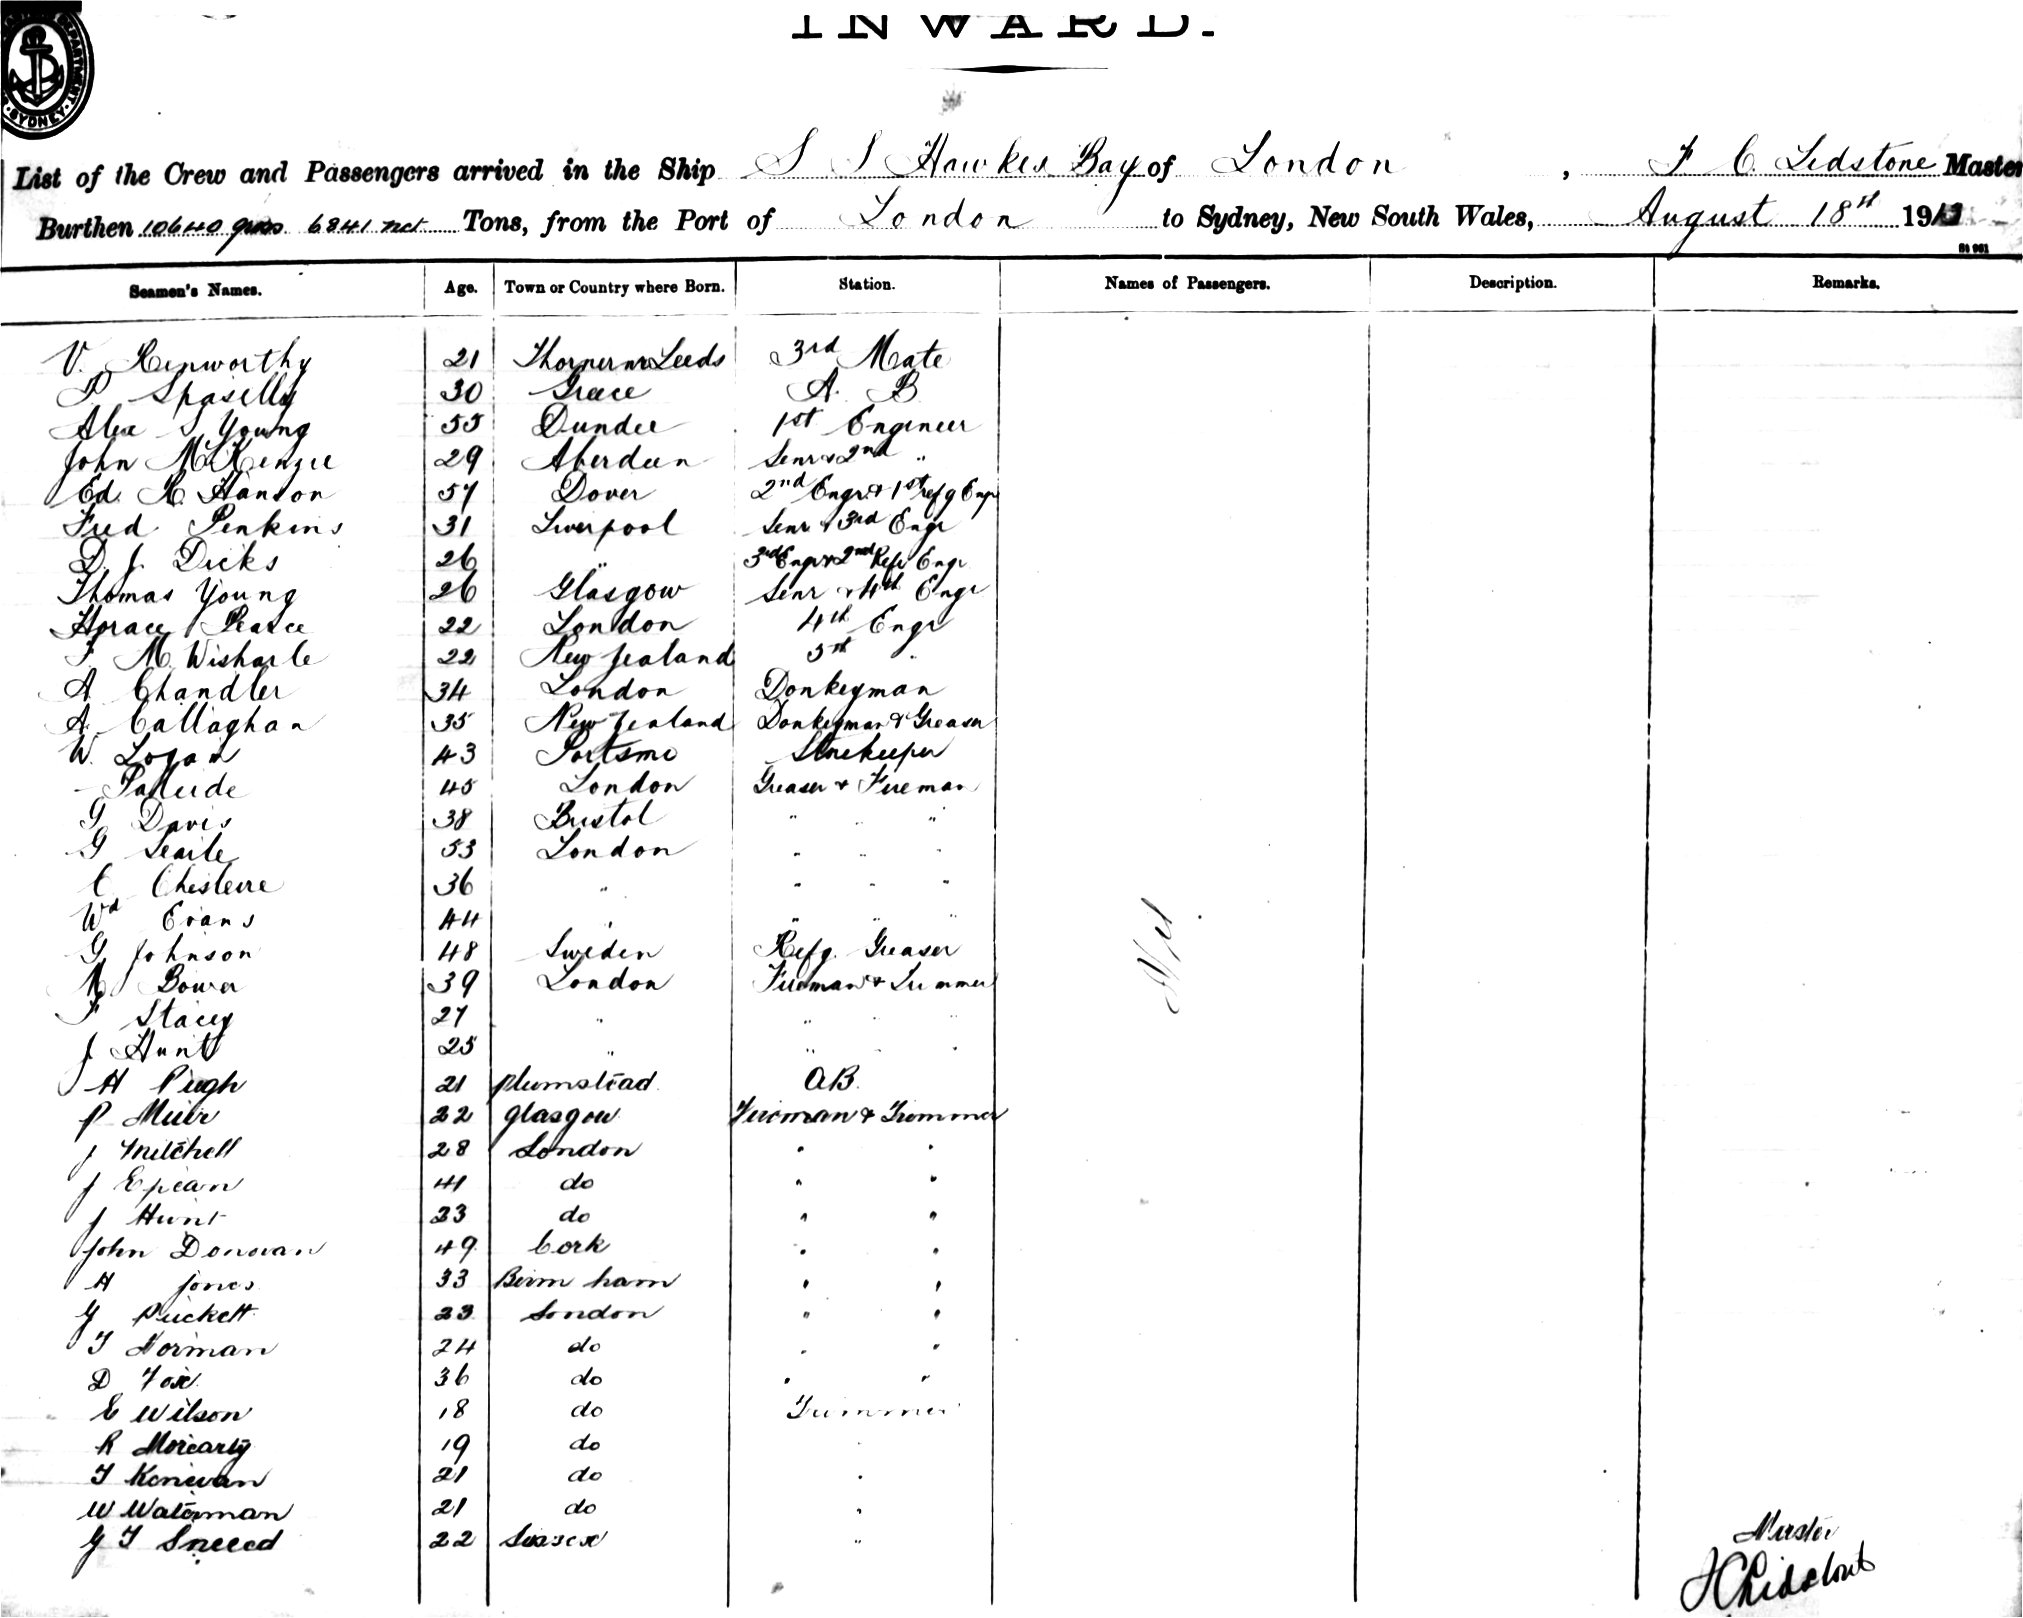 INWARD.
DEPARTMENT. SYDNEY.
List of the Crew and Passengers arrived in the Ship S S Hawkes Bay of London, F C Ledstone Master
Burthen 10640 gross 6841 net Tons, from the Port of London to Sydney, New South Wales, August 18th 191
St 961
Seamen's Names. Age. Town or Country where Born. Station. Names of Passengers. Description. Remarks.
V. Kenworthy 21 Thorner nr Leeds 3rd Mate
P 30 Greece A. B
Alex S Young 55 Dundee 1st Engineer
John McKenzie 29 Aberdeen Senr & 2nd "
Ed. K. Hanson 57 Dover 2nd Engr & 1st refg Engr
Fred Jenkins 31 Liverpool Senr & 3rd Engr
D. J. Dicks 26 " 3rd Engr & 2nd Refr Engr
Thomas Young 26 Glasgow Senr & 4th Engr
Horace Pearce 22 London 4th Engr
F M. Wisharte 22 New Zealand 5th "
A Chandler 34 London Donkeyman
A. Callaghan 35 New Zealand Donkeyman & Greaser
W. Logan 43 Portsmo Storekeeper
45 London Greaser & Fireman
G Davis 38 Bristol " " "
G Searle 53 London " " "
C Chesleire 36 " " " "
Wd Evans 44 " " " "
G Johnson 48 Sweden Refg. Greaser
M Bower 39 London Fireman & Trimmer
F Stacey 27 " " " "
J Hunt 25 " " " "
H Pugh 21 Plumstead AB.
P Muir 22 Glasgow Fireman & Trimmer
J Mitchell 28 London " "
J 41 do " "
J Hunt 23 do " "
John Donovan 49 Cork " "
H Jones 33 Birm ham " "
G Puckett 23 London " "
T Norman 24 do " "
D Fox 36 do " "
E Wilson 18 do Trimmer
R Moriarty 19 do "
T Kenivan 21 do "
W Waterman 21 do "
G T Sneeed 22 Sussex "
Nil
Master
F C Lidstone